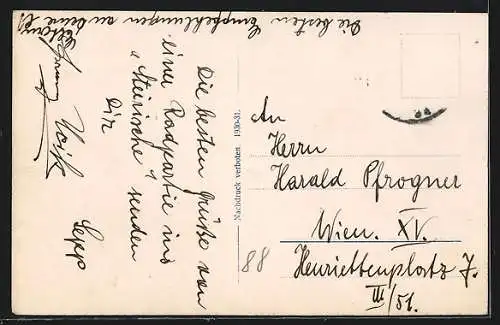 Die besten Empfehlungen an deine
Die besten Grüße von
einer Radpartie ins
"Steirische" senden
Dir
Sepp
Nachdruck verboten 1930-31.
An
Herrn
Harald Pfrogner
Wien. XV.
Henriettenplatz 7.
III/51.
88